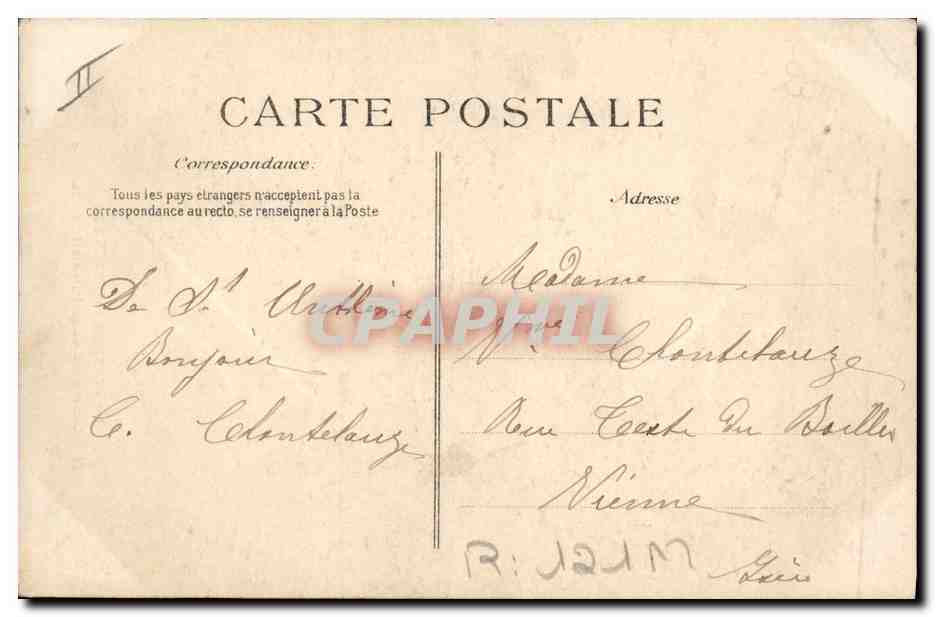 II
CARTE POSTALE
Correspondance.
Tous les pays etrangers n'acceptent pas la
correspondance au recto, se renseigner à la Poste
Adresse
De St Anthème
Bonjour
C. Chantelauze
Madame
Vve Chantelauze
Rue Teste du Bailler
Vienne
Isère
CPAPHIL